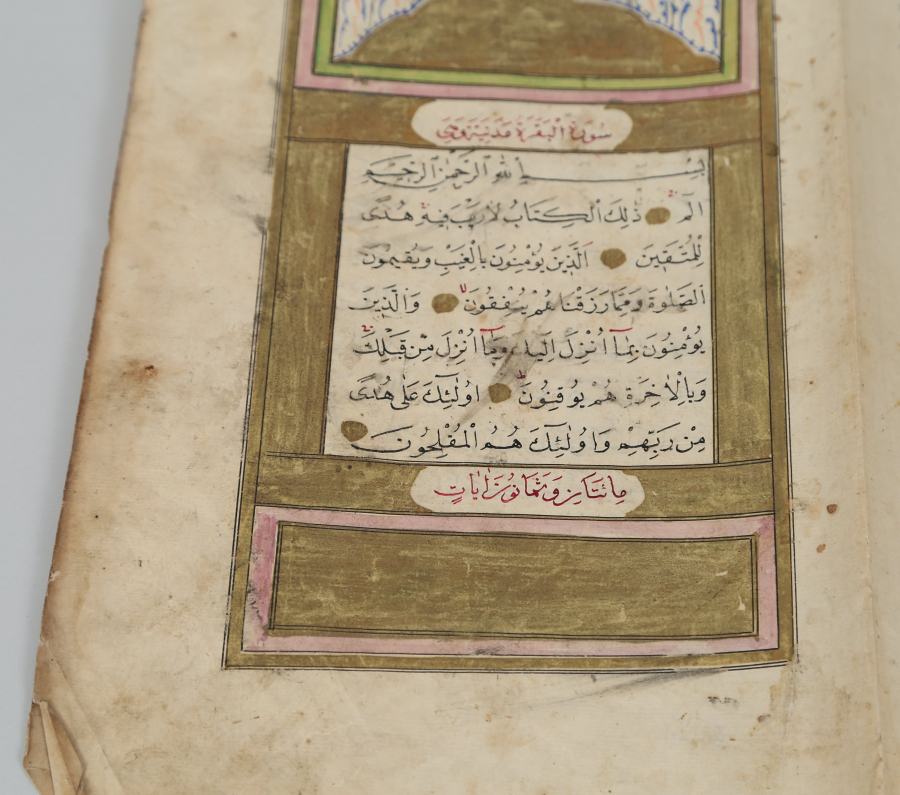 سُورَةُ الْبَقَرَةِ مَدَنِيَّةٌ وَهِيَ
بِسْمِ اللهِ الرَّحْمٰنِ الرَّحِيمِ
الٓمٓ ذٰلِكَ الْكِتَابُ لَا رَيْبَ فِيهِ هُدًى
لِلْمُتَّقِينَ الَّذِينَ يُؤْمِنُونَ بِالْغَيْبِ وَيُقِيمُونَ
الصَّلٰوةَ وَمِمَّا رَزَقْنَاهُمْ يُنْفِقُونَ وَالَّذِينَ
يُؤْمِنُونَ بِمَآ اُنْزِلَ اِلَيْكَ وَمَآ اُنْزِلَ مِنْ قَبْلِكَ
وَبِالْاٰخِرَةِ هُمْ يُوقِنُونَ اُولٰٓئِكَ عَلٰى هُدًى
مِنْ رَبِّهِمْ وَاُولٰٓئِكَ هُمُ الْمُفْلِحُونَ
مِائَتَانِ وَثَمَانُونَ اٰيَاتٍ